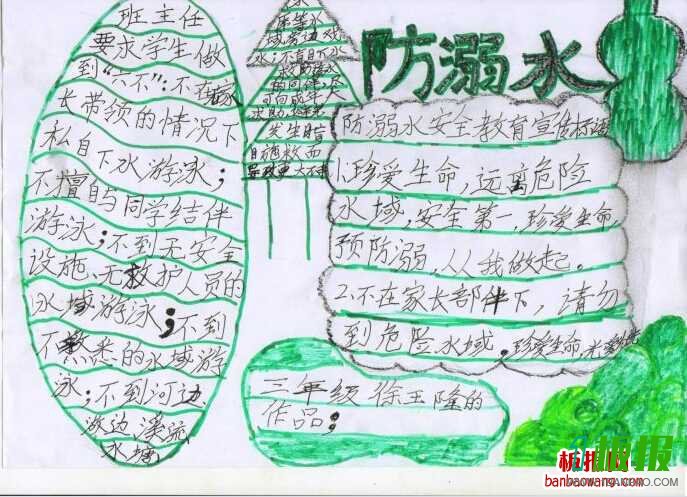 防溺水
班主任
要求学生做
到“六不”：不在家
长带领的情况下
私自下水游泳；
不擅自与同学结伴
游泳；不到无安全
设施、无救护人员的
水域游泳；不到
不熟悉的水域游
泳；不到河边、
溪流
水塘
域旁边戏
水；不盲目下水
的同伴，尽
可向成年人
发生盲目
自施救而
防溺水安全教育宣传标语
1、珍爱生命，远离危险
水域，安全第一，珍爱生命，
预防溺，从我做起。
2、不在家长部伴下，请勿
到危险水域，珍爱生命
三年级 徐玉隆的
作品；
板报网
banbaowang.com
板报